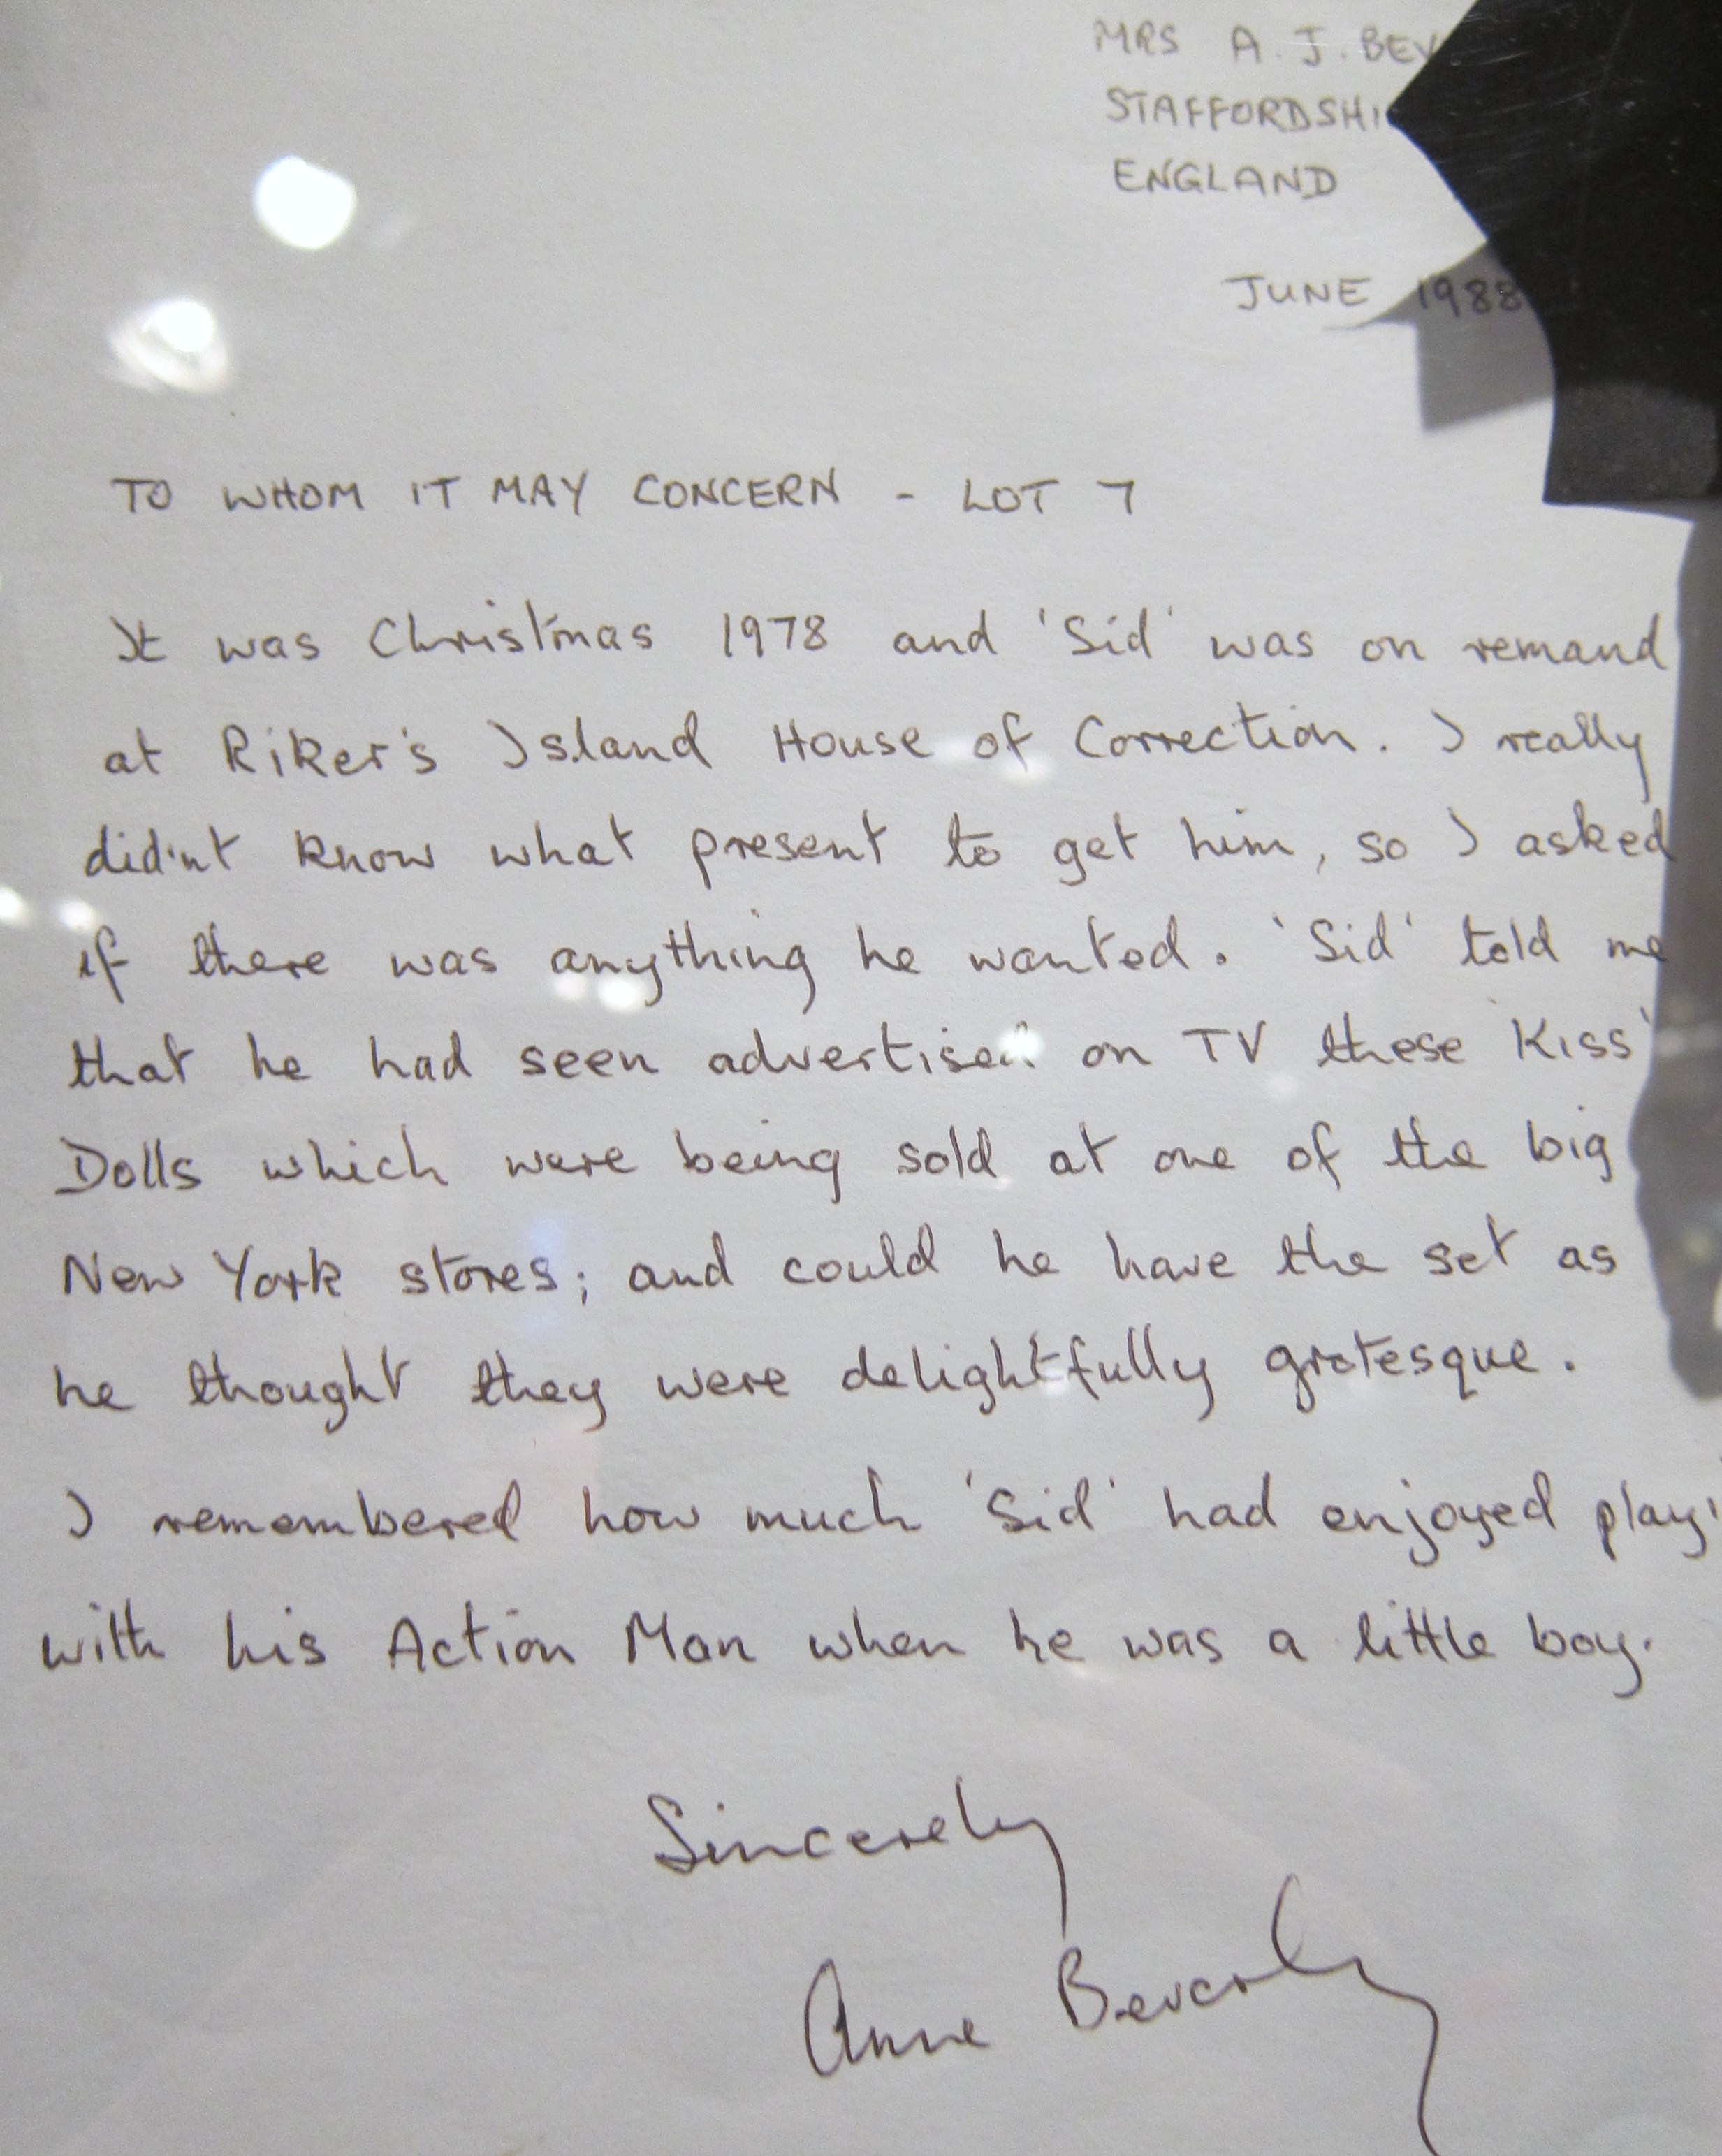 MRS A. J. BEV
STAFFORDSHI
ENGLAND
JUNE 1988
TO WHOM IT MAY CONCERN - LOT 7
It was Christmas 1978 and 'Sid' was on remand
at Riker's Island House of Correction. I really
did'nt know what present to get him, so I asked
if there was anything he wanted. 'Sid' told me
that he had seen advertised on TV these 'Kiss'
Dolls which were being sold at one of the big
New York stores; and could he have the set as
he thought they were delightfully grotesque.
I remembered how much 'Sid' had enjoyed playi
with his Action Man when he was a little boy.
Sincerely
Anne Beverly